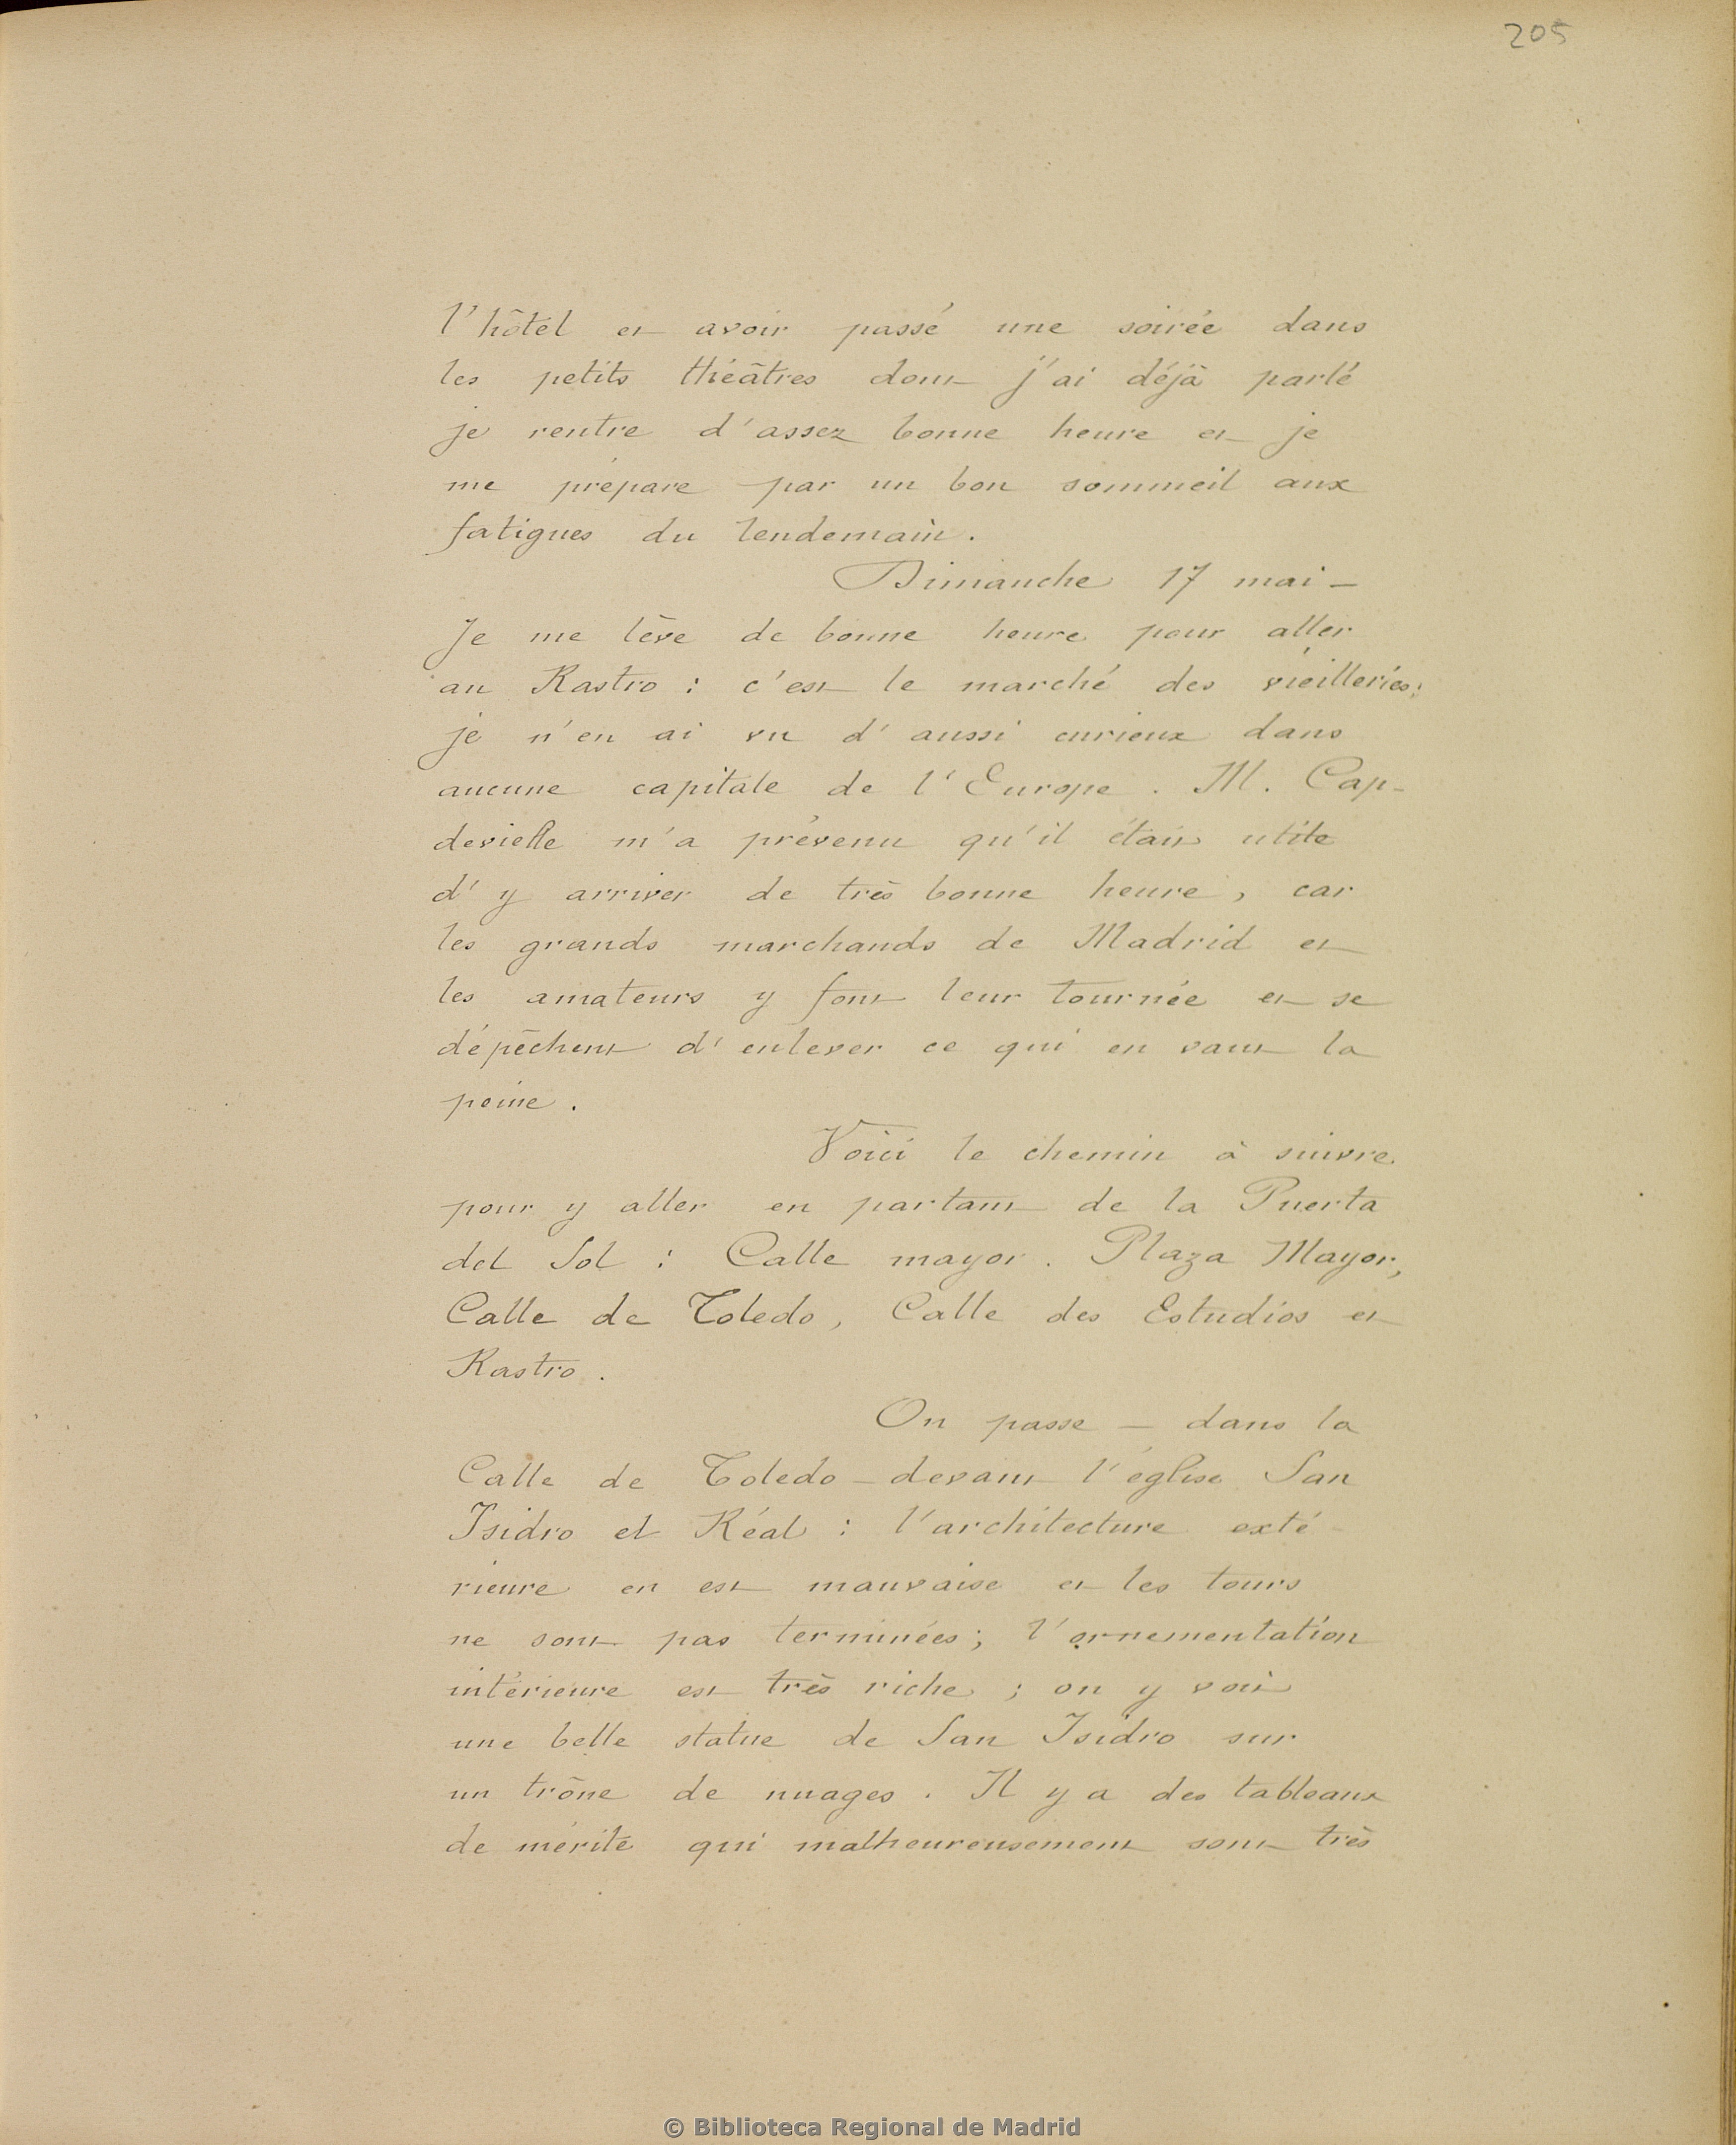 205
l'hôtel et avoir passé une soirée dans
les petits théâtres dont j'ai déjà parlé
je rentre d'assez bonne heure et je
me prépare par un bon sommeil aux
fatigues du lendemain.
Dimanche 17 mai —
Je me lève de bonne heure pour aller
au Rastro : c'est le marché des vieilleries;
je n'en ai vu d'aussi curieux dans
aucune capitale de l'Europe. M. Cap-
devielle m'a prévenu qu'il était utile
d'y arriver de très bonne heure, car
les grands marchands de Madrid et
les amateurs y font leur tournée et se
dépêchent d'enlever ce qui en vaut la
peine.
Voici le chemin à suivre
pour y aller en partant de la Puerta
del Sol : Calle mayor. Plaza Mayor,
Calle de Toledo, Calle des Estudios et
Rastro.
On passe — dans la
Calle de Toledo — devant l'église San
Isidro el Réal : l'architecture exté
rieure en est mauvaise et les tours
ne sont pas terminées; l'ornementation
intérieure est très riche ; on y voit
une belle statue de San Isidro sur
un trône de nuages. Il y a des tableaux
de mérite qui malheureusement sont très
© Biblioteca Regional de Madrid